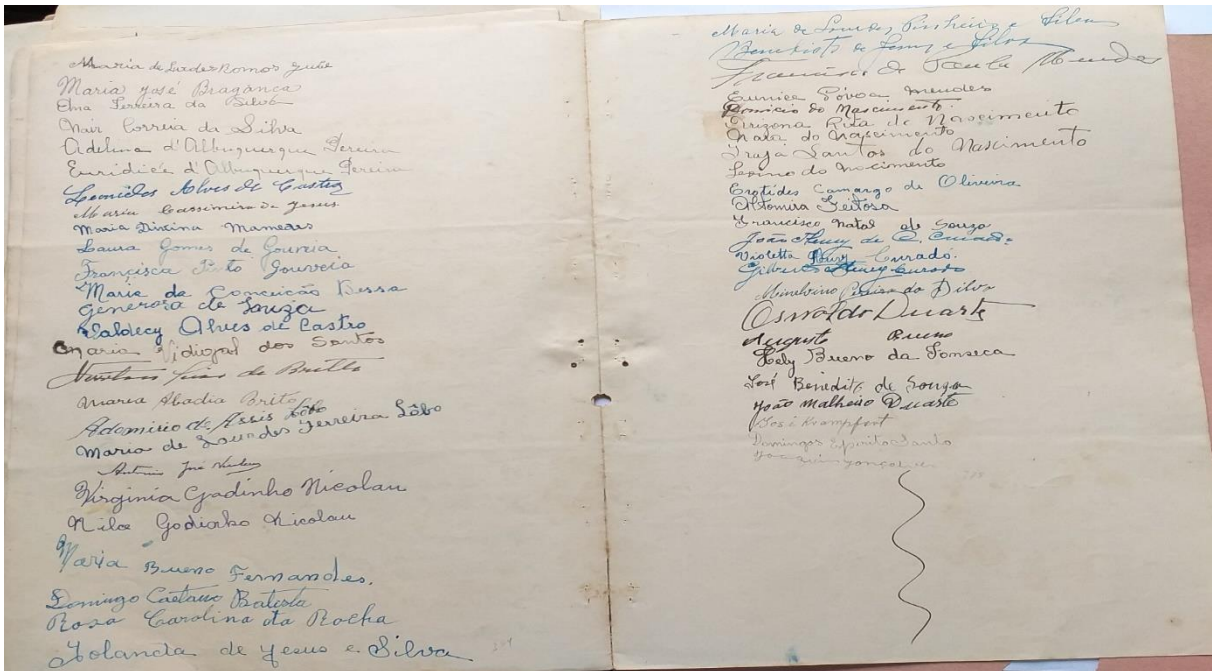 Maria de Lurdes Romos Jubé
Maria José Bragança
Elna Ferreira da Silva
Nair Correia da Silva
Adelina d'Albuquerque Pereira
Euridice d'Albuquerque Pereira
Leonidos Alves de Castro
Maria Cassimira de Jesus
Maria Divina Mamedes
Laura Gomes de Gouveia
Francisca Pinto Gouveia
Maria da Conceição Bessa
Generosa de Souza
Valdecy Alves de Castro
Maria Vidigal dos Santos
de Britto
Maria Abadia Brito
Adomicio de Assis Lôbo
Maria de Lourdes Ferreira Lôbo
Antonio José
Virginia Godinho Nicolau
Nilo Godinho Nicolau
Maria Bueno Fernandes.
Domingo Caetano Batista
Rosa Carolina da Rocha
Iolanda de Jesus e Silva
Maria de Lourdes Pinheiro e Silva
Benedito de Jesus e Silva
Francisco de Paula Mendes
Eunice Póvoa Mendes
do Nascimento.
Rita do Nascimento
Nair do Nascimento
Irajá Santos do Nascimento
do Nascimento
Erotides Camargo de Oliveira
Altomira Feitosa
Francisco Natal de Souza
João Fleury de Curado.
Violetta Fleury Curado.
Fleury Curado
Minelvino Pereira da Silva
Osvaldo Duarte
Augusto Bueno
Hely Bueno da Fonseca
José Benedito de Souza
João Malheiro Duarte
José Krampfert
Domingos Espirito Santo